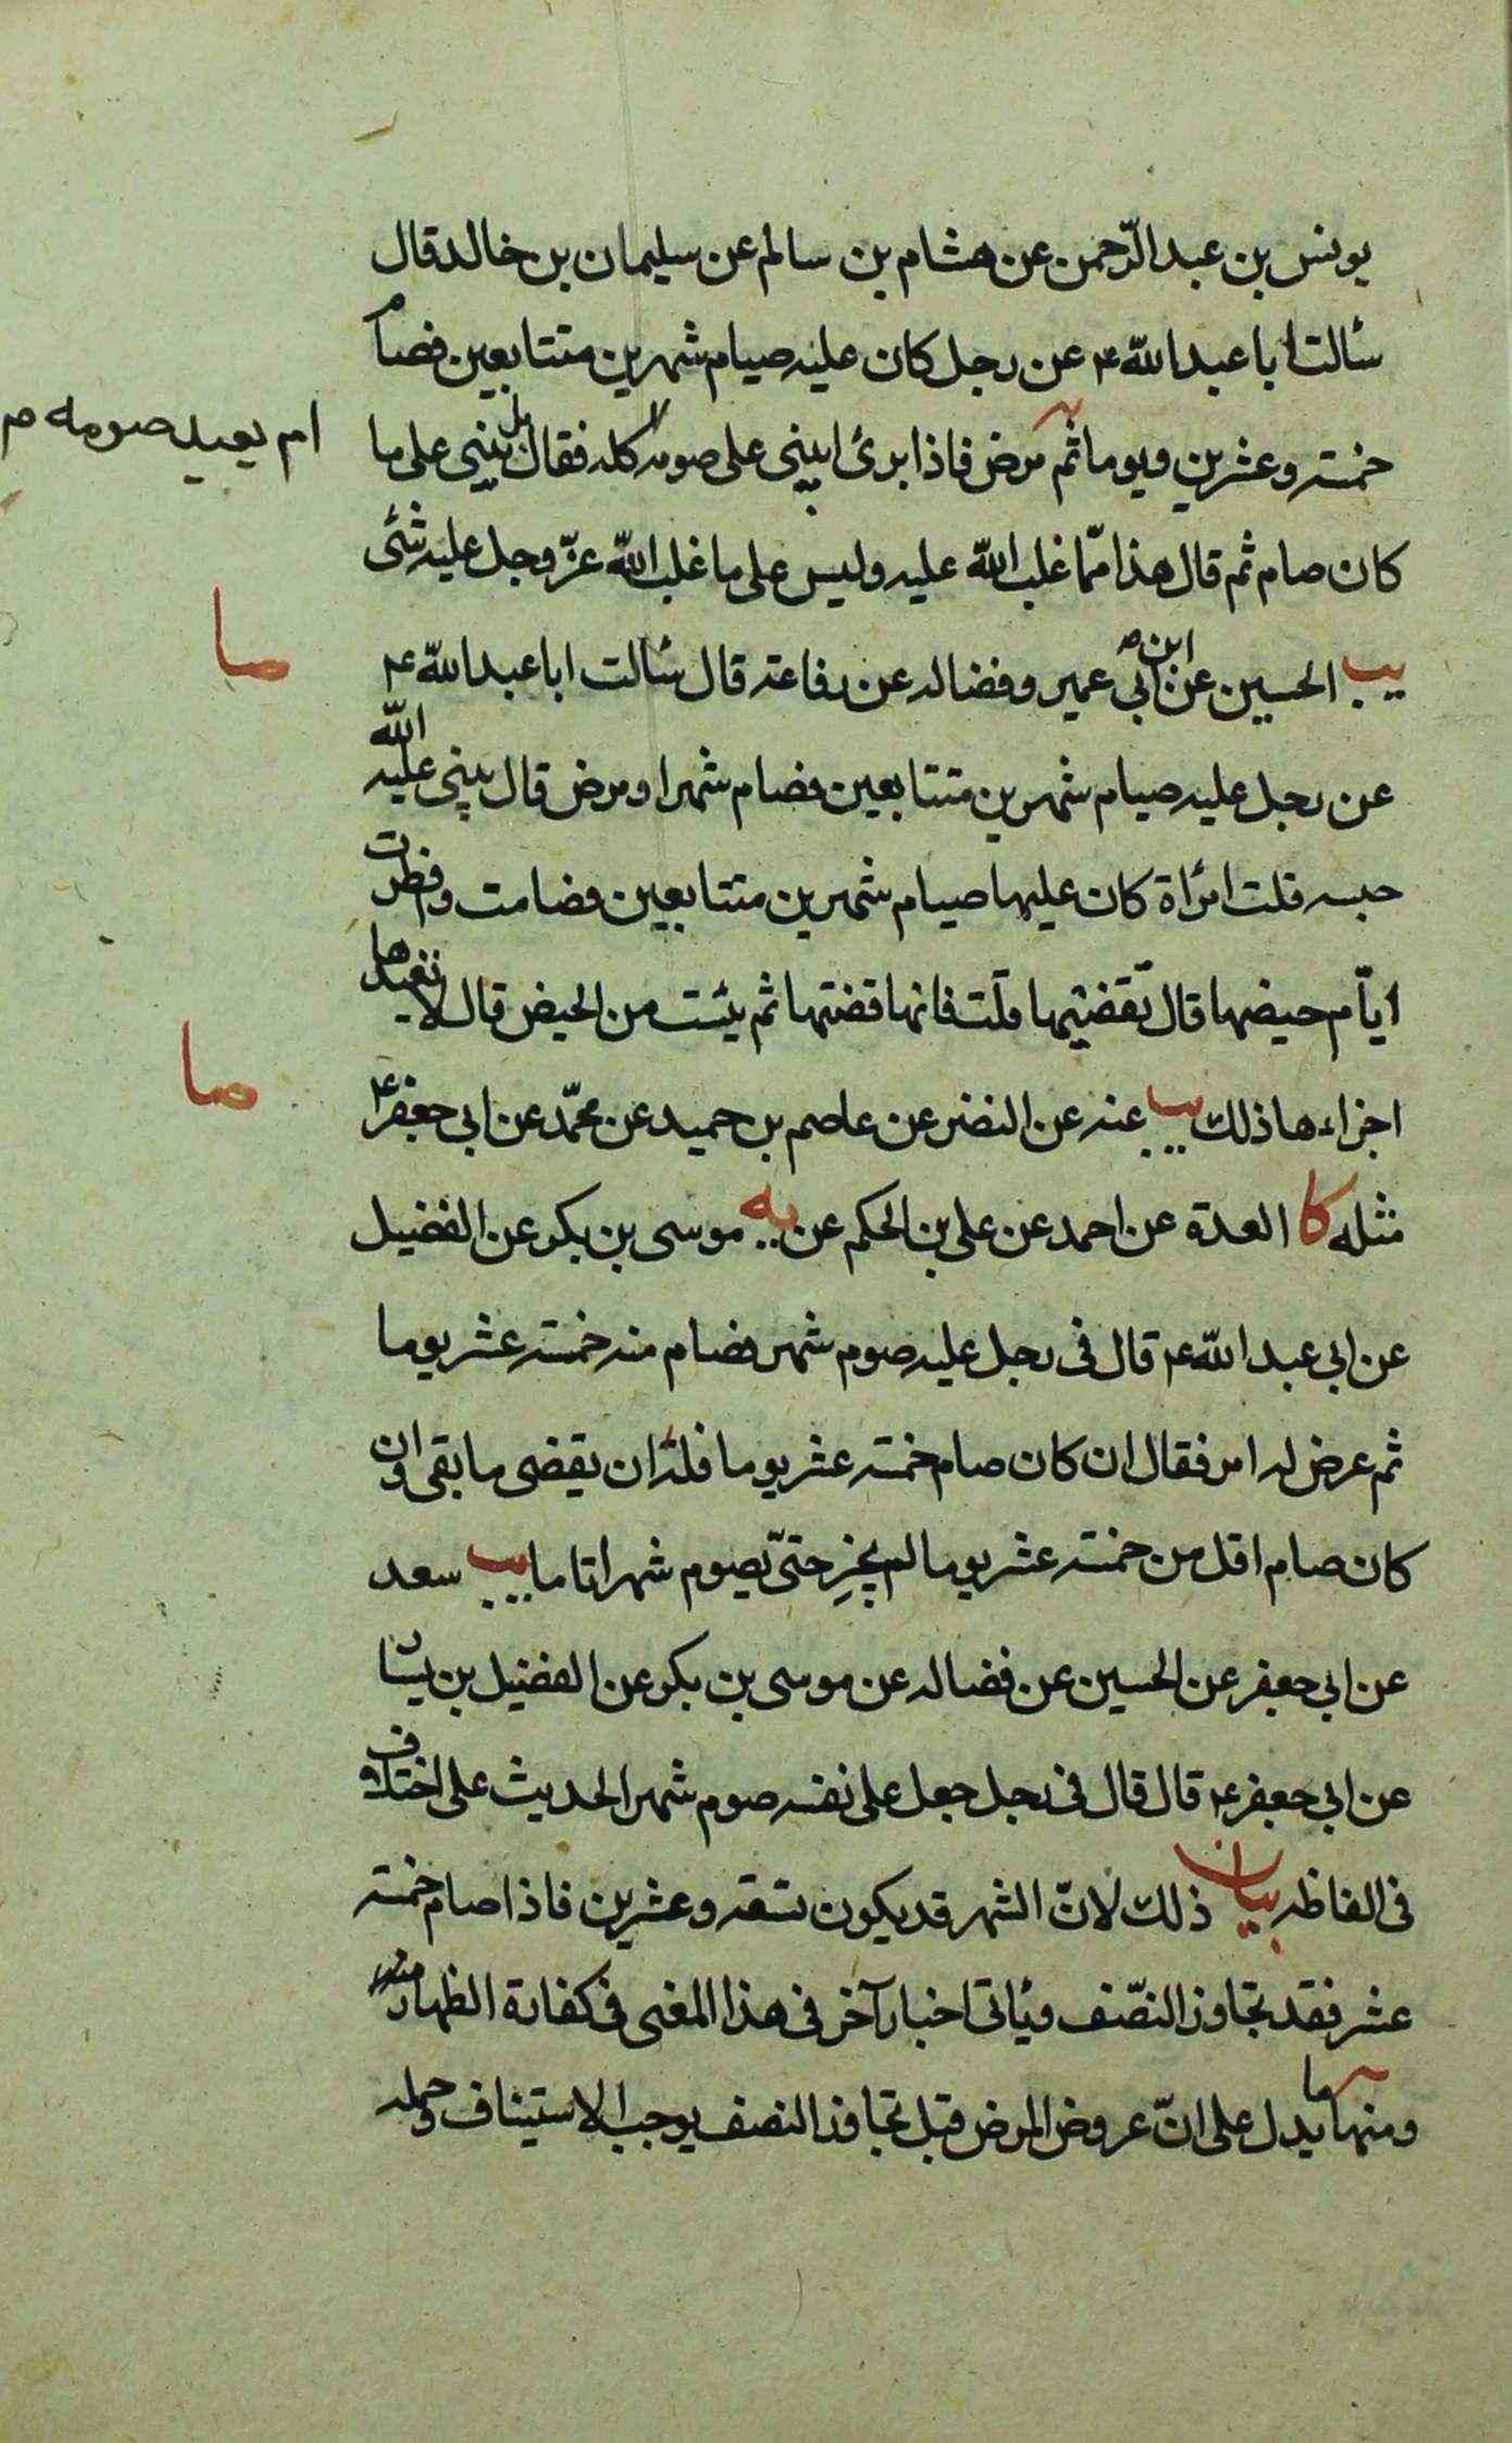 يونس بن عبد الرّحمن عن هشام بن سالم عن سليمان بن خالد قال
سئالت ابا عبد اللّه ع عن رجل كان عليه صيام شهرين متتابعين فصام
خمسة وعشرين ويوما ثم مرض فاذا برئ ايبنى على صومه كله فقال بل يبنى على ما
ام يعيد صومه م
كان صام ثم قال هذا ممّا غلب اللّه عليه وليس على ما غلب اللّه عزّ وجل عليه شئ
صا
يب الحسين عن ابن ابى عمير وفضاله عن رفاعة قال سئالت ابا عبد اللّه ع
عن رجل عليه صيام شهرين متتابعين فصام شهرا ومرض قال يبنى عليه اللّه
حبسه قلت امرأة كان عليها صيام شهرين متتابعين فصامت وافطرت
ايّام حيضها قال تقضيها قلت فانها قضتها ثم يئست من الحيض قال لا تعيدها
صا
اجزاءها ذلك يب عنه عن النضر عن عاصم بن حميد عن محمّد عن ابى جعفر ع
مثله كا العدة عن احمد عن على بن الحكم عن يه موسى بن بكر عن الفضيل
عن ابى عبد اللّه ع قال فى رجل عليه صوم شهر فصام منه خمسة عشر يوما
ثم عرض له امر فقال ان كان صام خمسة عشر يوما فله ان يقضى ما بقى وان
كان صام اقل من خمسة عشر يوما لم يجز حتىّ يصوم شهرا تاما يب سعد
عن ابى جعفر عن الحسين عن فضاله عن موسى بن بكر عن الفضيل بن يسار
عن ابى جعفر ع قال قال فى رجل جعل على نفسه صوم شهر الحديث على اختلاف
فى الفاظه بيان ذلك لانّ الشهر قد يكون تسعة وعشرين فاذا صام خمسة
عشر فقد تجاوز النصّف وياتى اخبار آخر فى هذا المعنى فى كفارة الظهار
ومنها ما يدل على انّ عروض المرض قبل تجاوز النصف يوجب الاستيناف وحمله